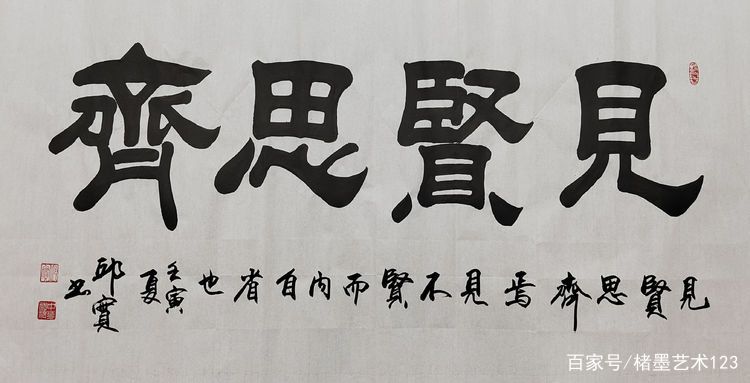 見賢思齊
見賢思齊焉見不賢而内自省也
壬寅
夏
邱寶
书
百家号/楮墨艺术123